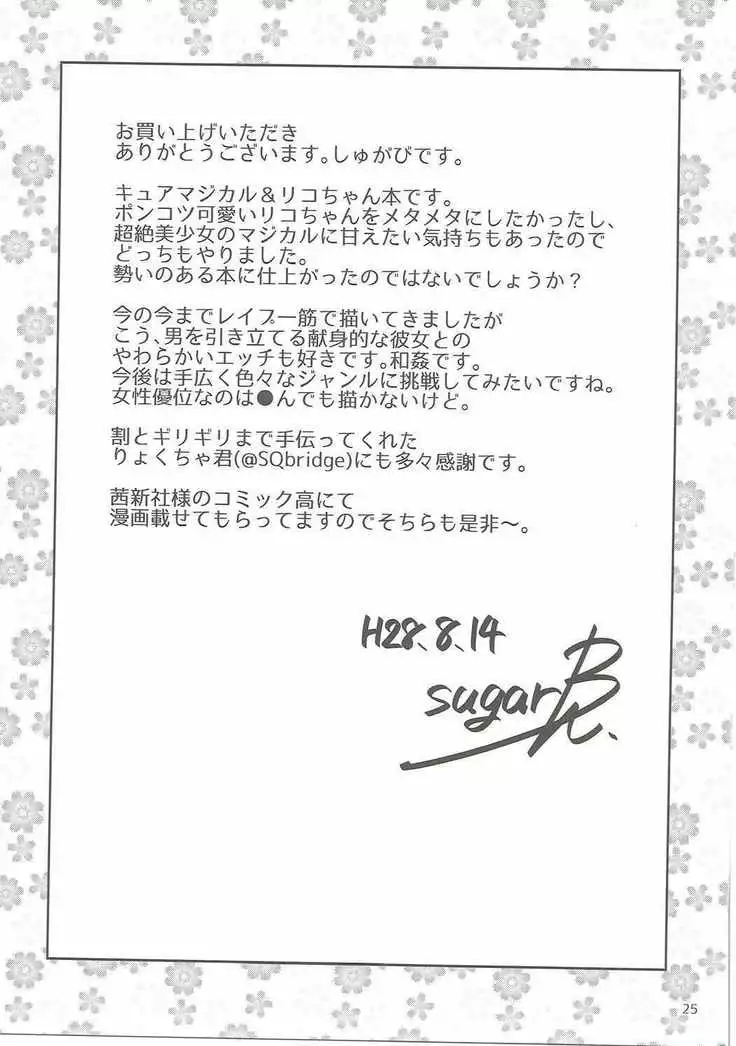 お買い上げいただき
ありがとうございます。しゅがびです。
キュアマジカル＆リコちゃん本です。
ポンコツ可愛いリコちゃんをメタメタにしたかったし、
超絶美少女のマジカルに甘えたい気持ちもあったので
どっちもやりました。
勢いのある本に仕上がったのではないでしょうか？
今の今までレイプ一筋で描いてきましたが
こう、男を引き立てる献身的な彼女との
やわらかいエッチも好きです。和姦です。
今後は手広く色々なジャンルに挑戦してみたいですね。
女性優位なのは●んでも描かないけど。
割とギリギリまで手伝ってくれた
りょくちゃ君(@SQbridge)にも多々感謝です。
茜新社様のコミック高にて
漫画載せてもらってますのでそちらも是非〜。
H28.8.14
sugarBt.
25